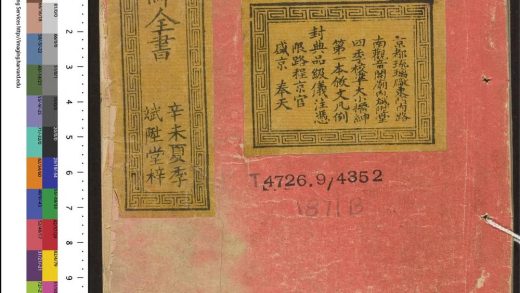 全書
辛未夏季
斌陞堂梓
京都琉璃厰東門內路
南觀音閣廟內斌陞堂
四季校正大小搢紳
第一本敘文凡例
封典品級儀注憑
限路程京官
盛京 奉天
T4726.9/4352
1871B
2
3
4
5
6
7
8
9